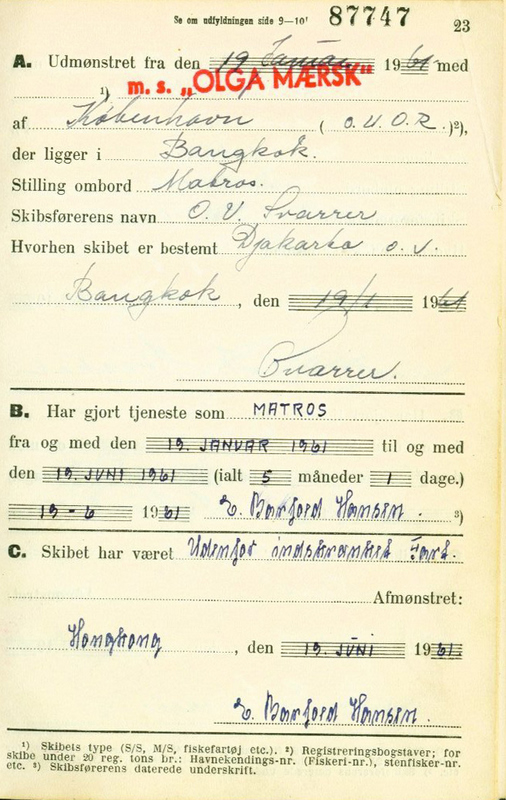 Se om udfyldningen side 9—10¹ 87747 23
A. Udmønstret fra den 19 Januar 1961 med
¹) m. s. „OLGA MÆRSK"
af København ( O.U.O.R. )²),
der ligger i Bangkok.
Stilling ombord Matros.
Skibsførerens navn O. V. Svarrer
Hvorhen skibet er bestemt Djakarta o. s.
Bangkok, den 19/1 1961
Svarrer.
B. Har gjort tjeneste som MATROS
fra og med den 19. JANUAR 1961 til og med
den 19. JUNI 1961 (ialt 5 måneder 1 dage.)
19 - 6 1961 E. Barfoed Hansen. ³)
C. Skibet har været Udenfor indskrænket Fart.
Afmønstret:
Hongkong, den 19. JUNI 1961.
E. Barfoed Hansen.
¹) Skibets type (S/S, M/S, fiskefartøj etc.). ²) Registreringsbogstaver; for
skibe under 20 reg. tons br.: Havnekendings-nr. (Fiskeri-nr.), stenfisker-nr.
etc. ³) Skibsførerens daterede underskrift.